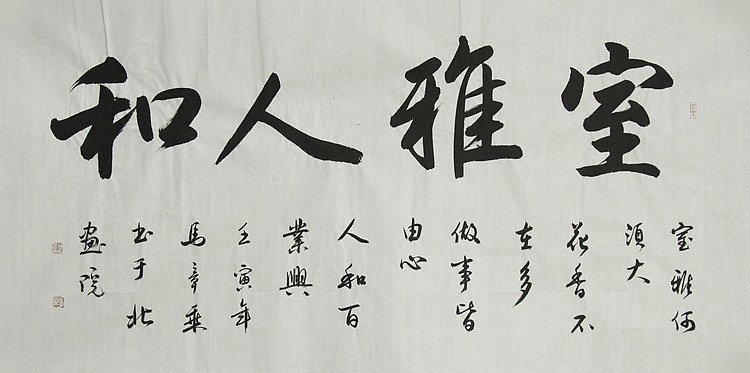 室雅人和
室雅何
须大
花香不
在多
做事皆
由心
人和百
業興
壬寅年
馬章乘
书于北
画院